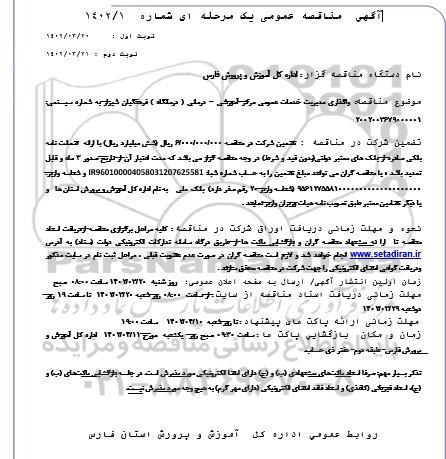 آگهی مناقصه عمومی یک مرحله ای شماره ۱۴۰۲/۱
نوبت اول : ۱۴۰۲/۰۳/۲۰
نوبت دوم : ۱۴۰۲/۰۳/۲۱
نام دستگاه مناقصه گزار: اداره کل آموزش و پرورش فارس
موضوع مناقصه: واگذاری مدیریت خدمات عمومی مرکز آموزشی – درمانی ( درمانگاه ) فرهنگیان شیراز به شماره سیستمی:
تضمین شرکت در مناقصه : تضمین شرکت در مناقصه ۶/۰۰۰/۰۰۰/۰۰۰ ریال (شش میلیارد ریال) با ارائه ضمانت نامه
بانکی صادره از بانک های معتبر دولتی(بدون قید و شرط) در وجه مناقصه گزار می باشد که مدت اعتبار آن از تاریخ صدور ۳ ماه و قابل
تمدید باشد ، یا مناقصه گران می توانند مبالغ تضمین را به حساب شماره شبا: IR960100004058031207625581 و شناسه واریز
بانک ملی به نام اداره کل آموزش و پرورش استان ها و
یا دیگر تضامین معتبر طبق تصویب نامه هیات وزیران واریز نمایند.
نحوه و مهلت زمانی دریافت اوراق شرکت در مناقصه : کلیه مراحل برگزاری مناقصه از دریافت اسناد
مناقصه تا ارائه پیشنهاد مناقصه گران و بازگشایی پاکت ها از طریق درگاه سامانه تدارکات الکترونیکی دولت (ستاد) به آدرس
www.setadiran.ir انجام خواهد شد و لازم است مناقصه گران در صورت عدم عضویت قبلی ، مراحل ثبت نام در سایت مذکور
و دریافت گواهی امضای الکترونیکی را جهت شرکت در مناقصه محقق سازند.
زمان اولین انتشار آگهی/ ارسال به صفحه اعلان عمومی: روز شنبه ۱۴۰۲/۰۳/۲۰ ساعت ۰۸:۰۰ صبح
مهلت زمانی دریافت اسناد مناقصه از سایت: از ساعت ۰۸:۰۰ روز شنبه ۱۴۰۲/۰۳/۲۰ تا ساعت ۱۹ روز
مهلت زمانی ارائه پاکت های پیشنهاد : تا روز شنبه ۱۴۰۲/۰۴/۱۰ ساعت ۱۹:۰۰
زمان و مکان بازگشایی پاکت ها : ساعت ۰۹:۳۰ صبح روز یکشنبه مورخ ۱۴۰۲/۰۴/۱۱ اداره کل آموزش و
پرورش فارس- طبقه دوم- دفتر
تذکر بسیار مهم: صرفا اسناد پاکت‌های پیشنهادی (ب) و (ج) دارای امضا الکترونیکی مورد پذیرش است. در جلسه بازگشایی پاکت‌های (ب) و
(ج)، اسناد فیزیکی (کاغذی) و اسناد فاقد امضای الکترونیکی (دارای مهر گرم) به هیچ وجه مورد پذیرش نیست.
روابط عمومی اداره کل آموزش و پرورش استان فارس